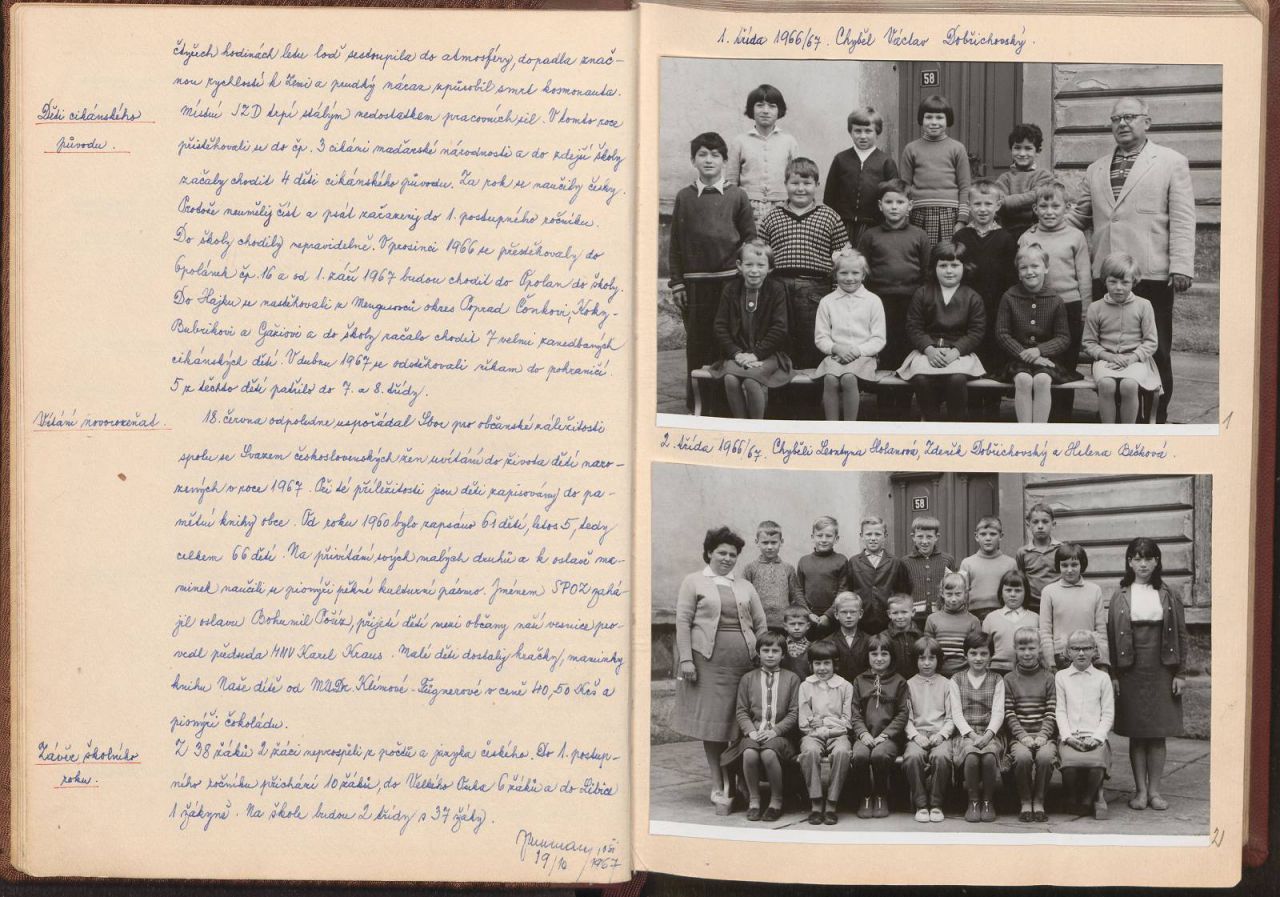 čtyřech hodinách letu loď sestoupila do atmosféry, dopadla znač-
nou rychlostí k Zemi a prudký náraz způsobil smrt kosmonauta.
Děti cikánského
původu.
Místní JZD trpí stálým nedostatkem pracovních sil. V tomto roce
přistěhovali se do čp. 3 cikáni maďarské národnosti a do zdejší školy
začaly chodit 4 děti cikánského původu. Za rok se naučily česky.
Protože neuměly číst a psát zařazeny do 1. postupného ročníku.
Do školy chodily nepravidelně. V prosinci 1966 se přestěhovaly do
Opolánek čp. 16 a od 1. září 1967 budou chodit do Opolan do školy.
Do Hájku se nastěhovali z okres Poprad Čonkovi, Koky-
Bubrikovi a Gažiovi a do školy začalo chodit 7 velmi zanedbaných
cikánských dětí. V dubnu 1967 se odstěhovali někam do pohraničí.
5 z těchto dětí patřilo do 7. a 8. třídy.
Vítání novorozeňat.
18. června odpoledne uspořádal Sbor pro občanské záležitosti
spolu se Svazem československých žen uvítání do života dětí naro-
zených v roce 1967. Při té příležitosti jsou děti zapisovány do pa-
mětní knihy obce. Od roku 1960 bylo zapsáno 61 dětí, letos 5, tedy
celkem 66 dětí. Na přivítání svých malých druhů a k oslavě ma-
minek naučili se pionýři pěkné kulturní pásmo. Jménem SPOZ zahá-
jil oslavu Bohumil, přijetí dětí mezi občany naší vesnice pro-
vedl předseda MNV Karel Kraus. Malé děti dostaly hračky, maminky
knihu Naše dítě od MUDr. Klímové-Fügnerové v ceně 40,50 Kčs a
pionýři čokoládu.
Závěr školního
roku.
Z 38 žáků 2 žáci neprospěli z počtů a jazyka českého. Do 1. postup-
ného ročníku přichází 10 žáků, do Velkého Oseka 6 žáků a do Libice
1 žákyně. Na škole budou 2 třídy s 37 žáky.
19/10 1967
1. třída 1966/67. Chyběl Václav Dobřichovský.
58
1
2. třída 1966/67. Chyběli Leontyna Holanová, Zdeněk Dobřichovský a Helena Bečková.
58
2